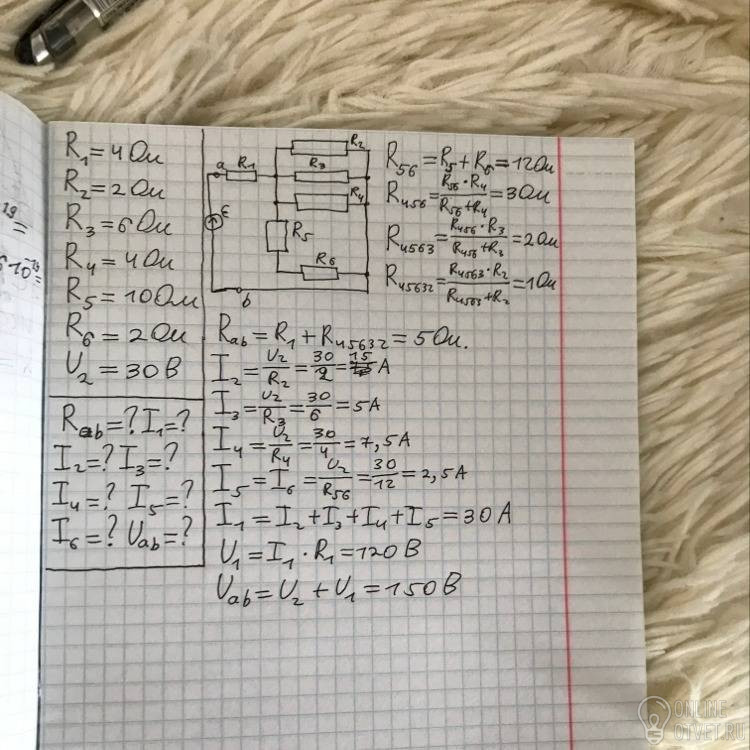 R₁=4Ом
R₂=2Ом
R₃=6Ом
R₄=4Ом
R₅=10Ом
R₆=2Ом
U₂=30В
Rab=? I₁=?
I₂=? I₃=?
I₄=? I₅=?
I₆=? Uab=?
a R₁ R₂
R₃
R₄
ε R₅
R₆
b
R₅₆=R₅+R₆=12Ом
R₄₅₆=R₅₆·R₄/R₅₆+R₄=3Ом
R₄₅₆₃=R₄₅₆·R₃/R₄₅₆+R₃=2Ом
R₄₅₆₃₂=R₄₅₆₃·R₂/R₄₅₆₃+R₂=1Ом
Rab=R₁+R₄₅₆₃₂=5Ом.
I₂=U₂/R₂=30/2=15А
I₃=U₂/R₃=30/6=5А
I₄=U₂/R₄=30/4=7,5А
I₅=I₆=U₂/R₅₆=30/12=2,5А
I₁=I₂+I₃+I₄+I₅=30А
U₁=I₁·R₁=120В
Uab=U₂+U₁=150В
ONLINE
OTVET.RU